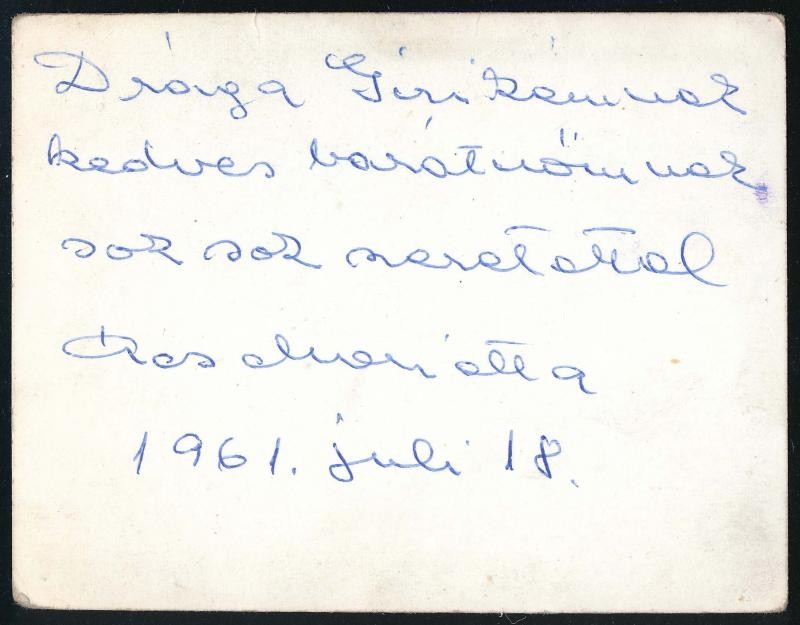 Drága Girikémnek
kedves barátnőmnek
sok sok szeretettel
Marietta
1961. juli 18.